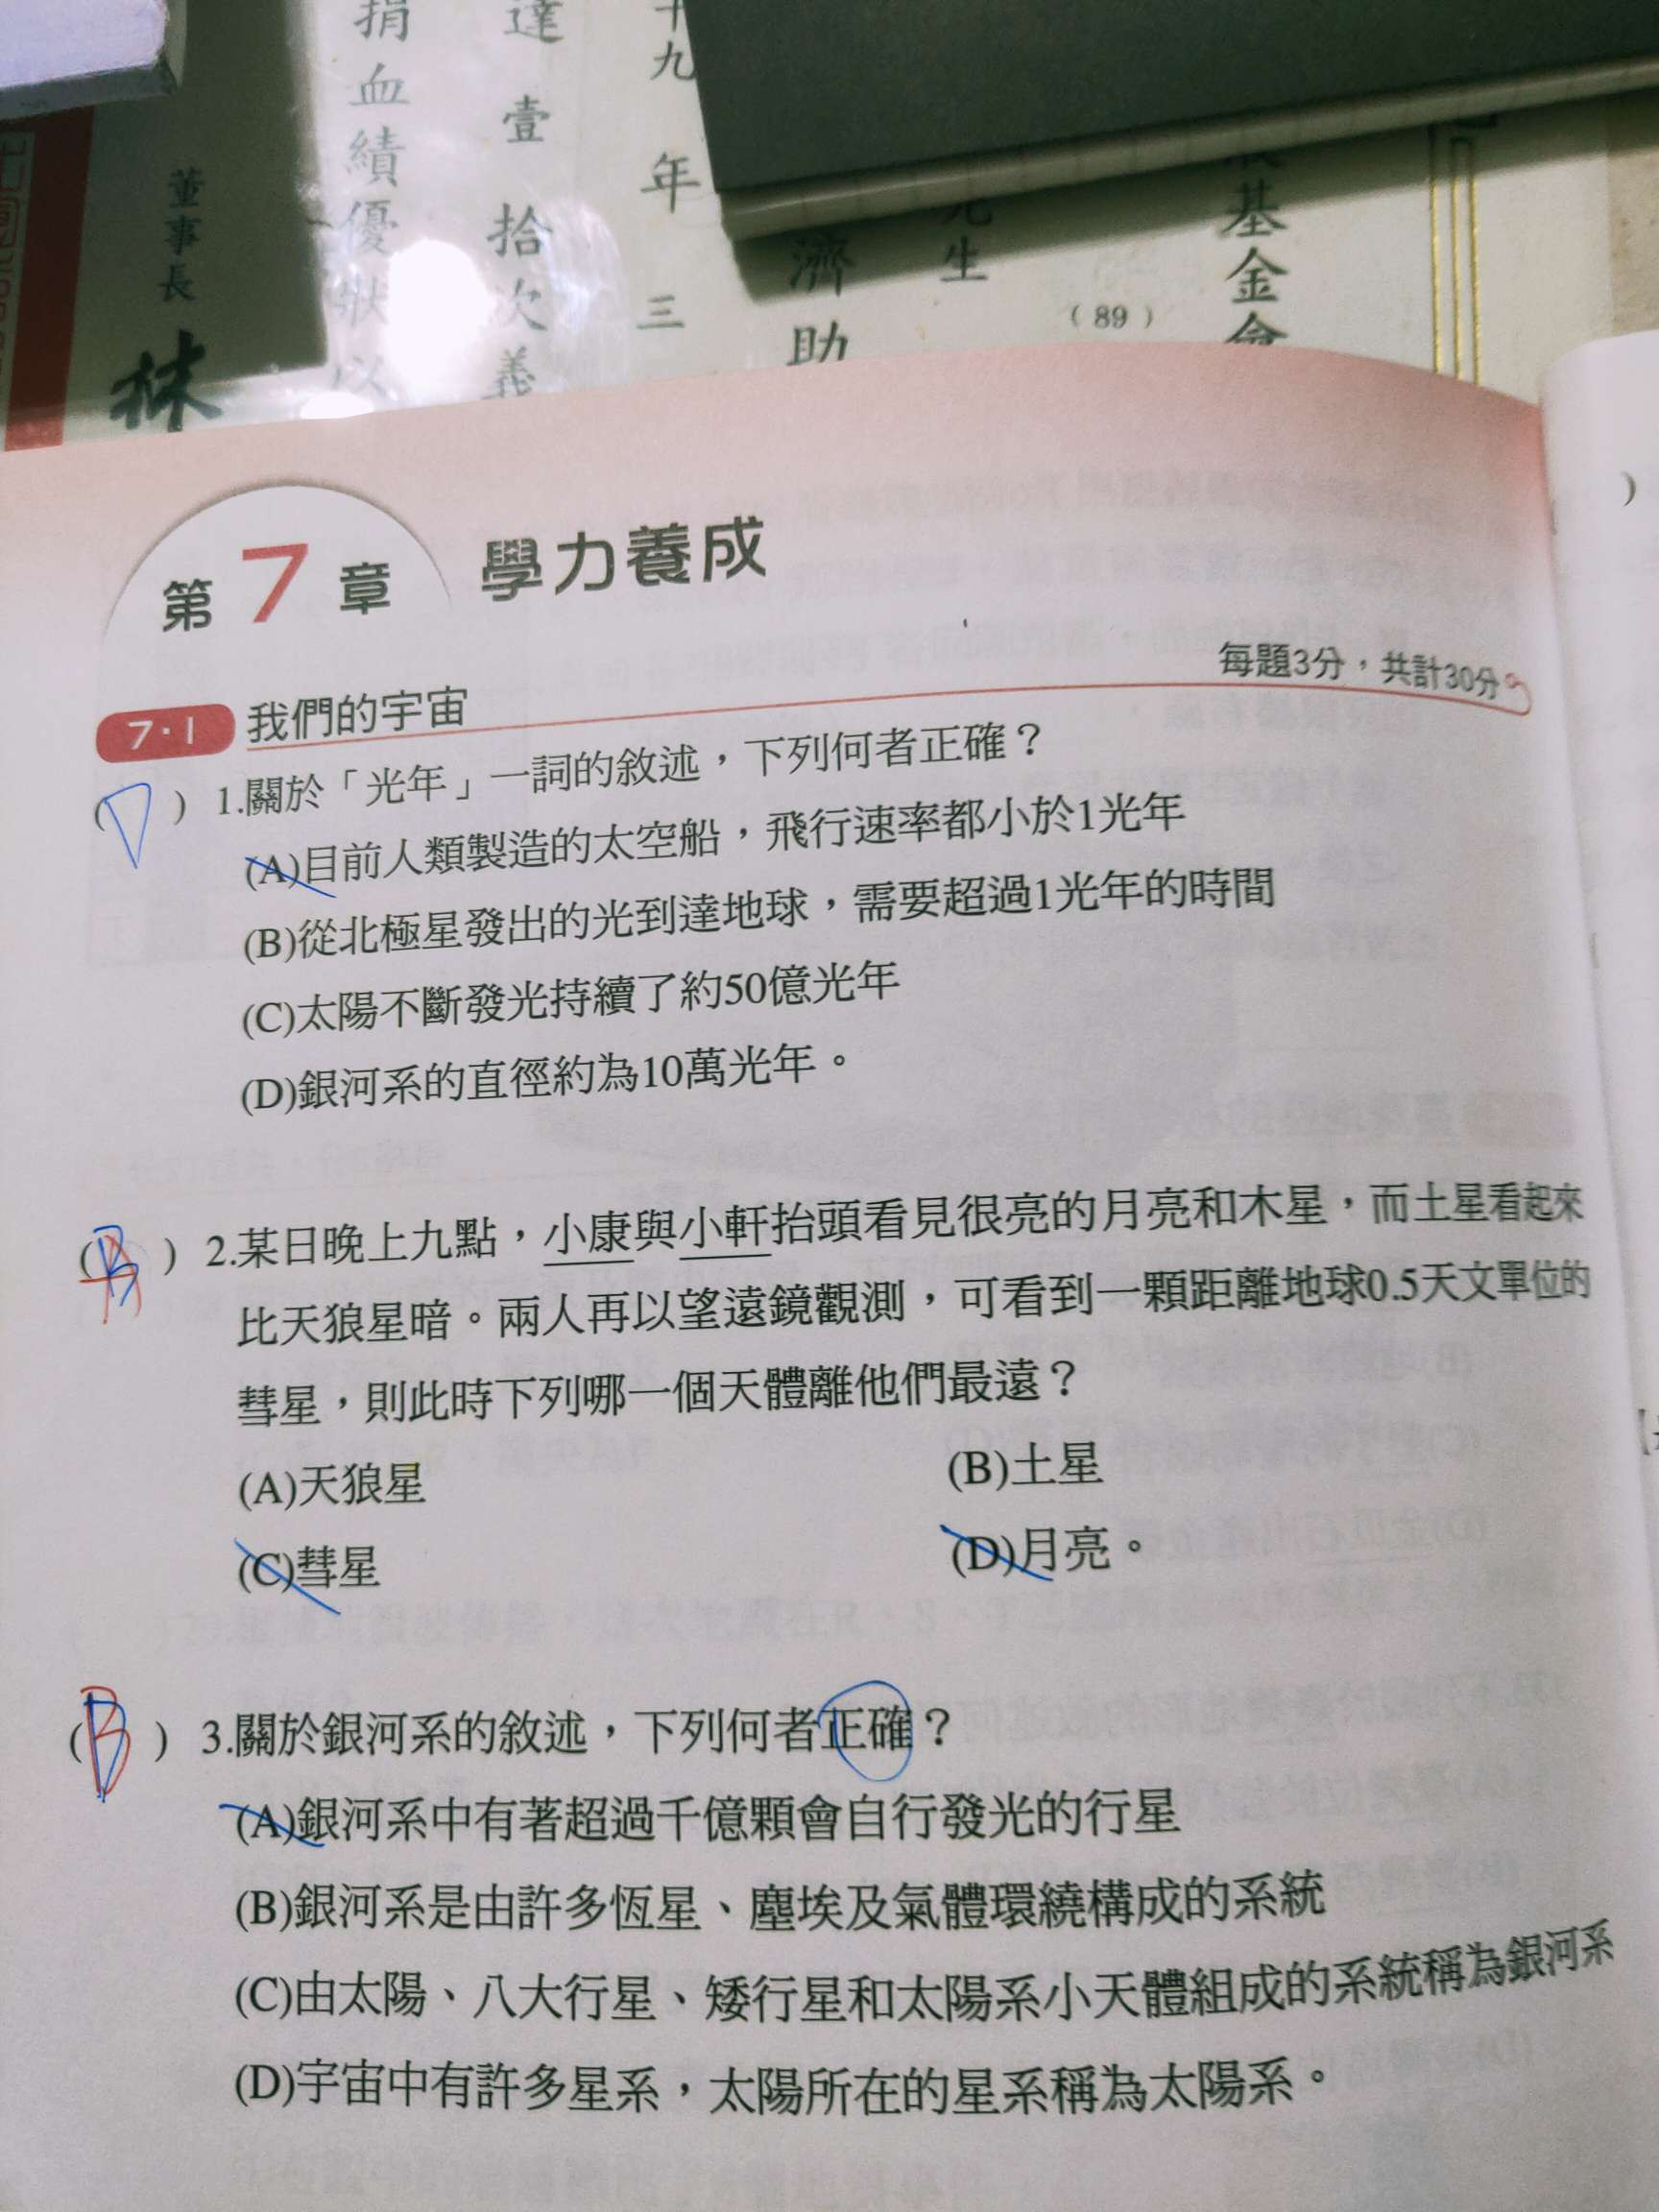 捐血績優狀以
達壹拾次義
十九年三
濟助
先生
(89)
基金會
董事長
林
第7章 學力養成
7·1 我們的宇宙
每題3分，共計30分
(D) 1.關於「光年」一詞的敘述，下列何者正確？
(A)目前人類製造的太空船，飛行速率都小於1光年
(B)從北極星發出的光到達地球，需要超過1光年的時間
(C)太陽不斷發光持續了約50億光年
(D)銀河系的直徑約為10萬光年。
( ) 2.某日晚上九點，小康與小軒抬頭看見很亮的月亮和木星，而土星看起來
比天狼星暗。兩人再以望遠鏡觀測，可看到一顆距離地球0.5天文單位的
彗星，則此時下列哪一個天體離他們最遠？
(A)天狼星 (B)土星
(C)彗星 (D)月亮。
(B) 3.關於銀河系的敘述，下列何者正確？
(A)銀河系中有著超過千億顆會自行發光的行星
(B)銀河系是由許多恆星、塵埃及氣體環繞構成的系統
(C)由太陽、八大行星、矮行星和太陽系小天體組成的系統稱為銀河系
(D)宇宙中有許多星系，太陽所在的星系稱為太陽系。